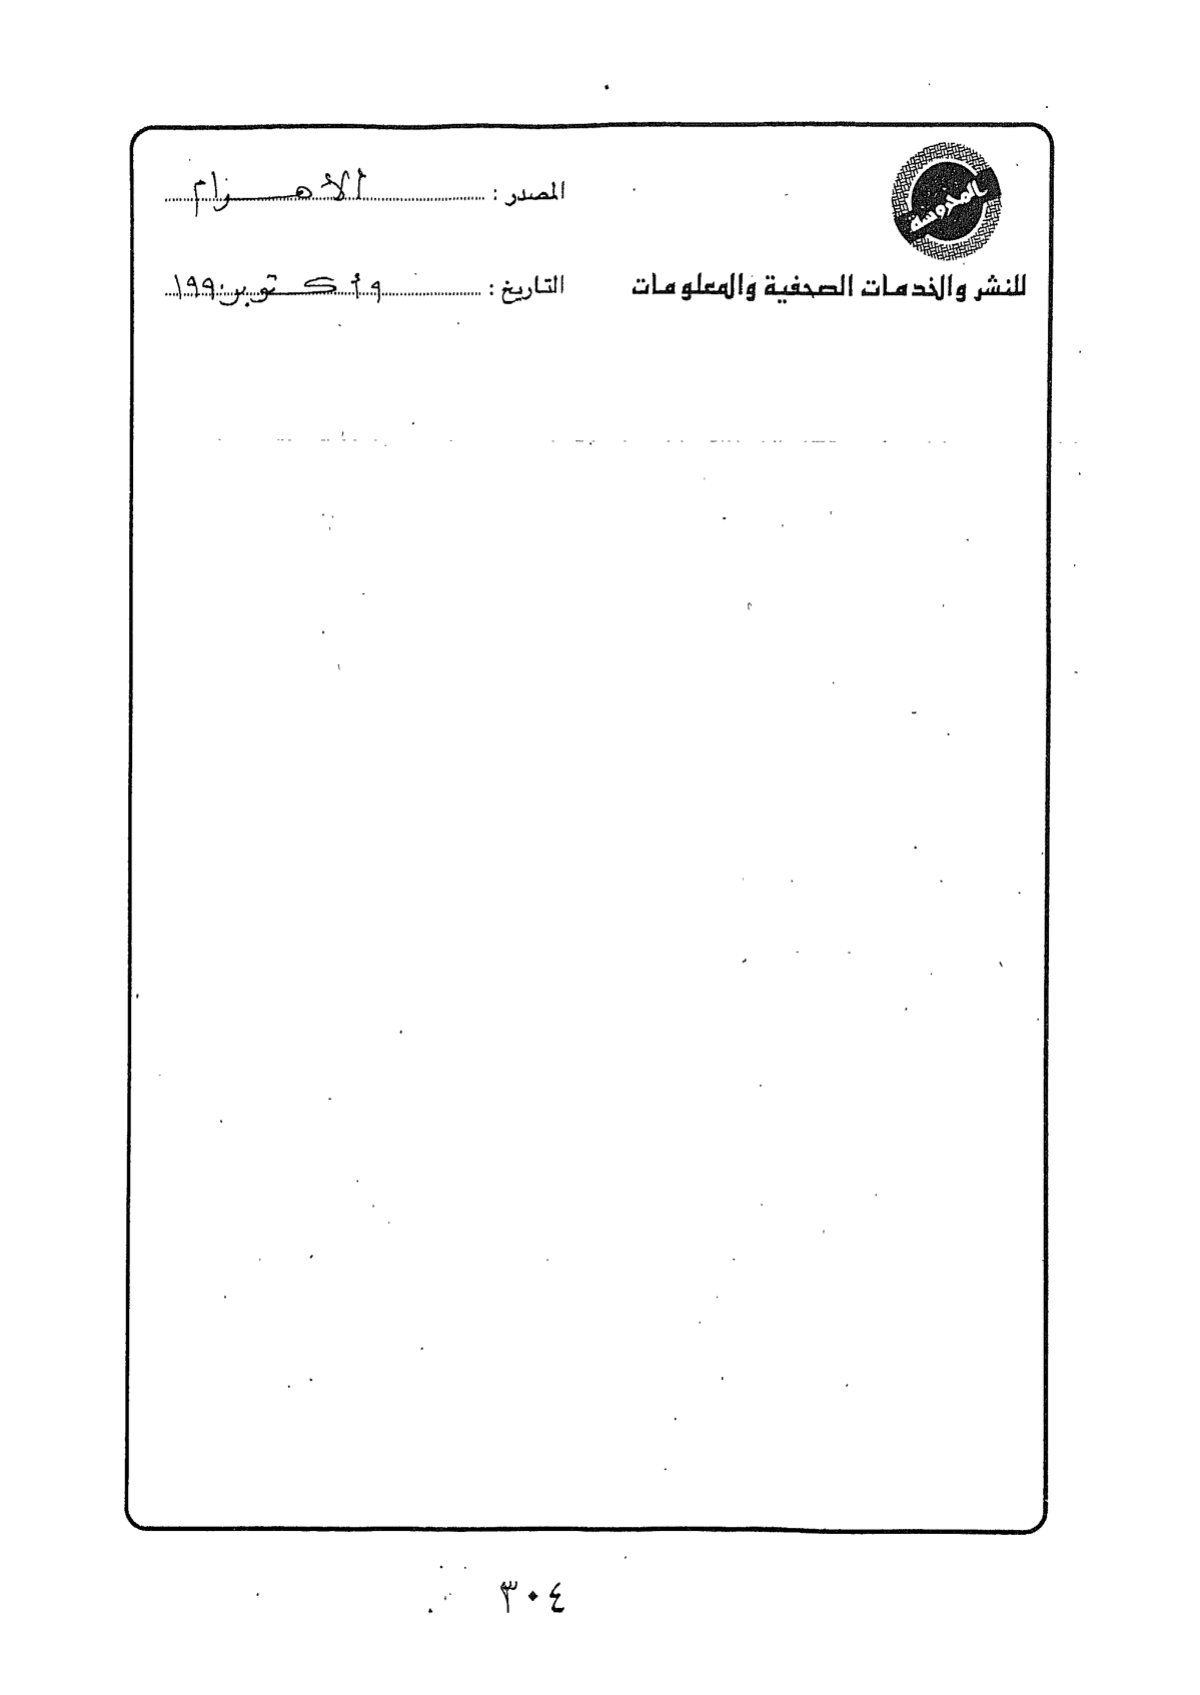 المحروسة
للنشر والخدمات الصحفية والمعلومات
المصدر : الأهرام
التاريخ : ٩ أكتوبر ١٩٩٠
٣٠٤